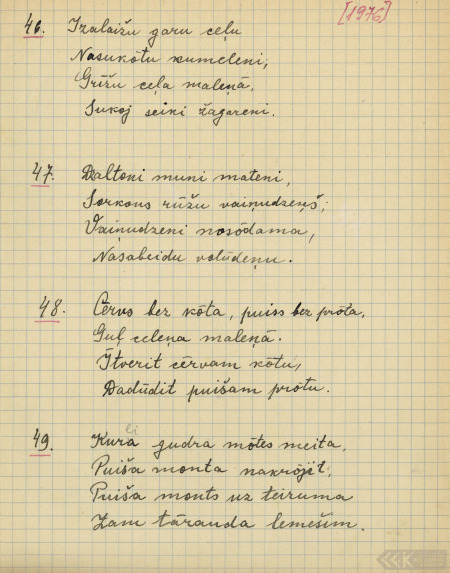 [1976]
46. Izalaižu garu ceļu
Nasukōtu kumeleni,
Grīžu ceļa maleņā,
Sukoj seiki žagareni.
47. Dzaltoni muni mateni,
Sorkons rūžu vaiņudzeņš;
Vaiņudzeni nosōdama,
Nasabeidu volūdeņu.
48. Cērvs bez kōta, puiss bez prōta,
Guļ celeņa maleņā.
Ītverit cērvam kōtu,
Dadūdit puišam protu.
49. Kura gudra mōtes meita,
li
Puiša monta nakrōjit;
Puiša monts uz teiruma
Zam tārauda lemešim.